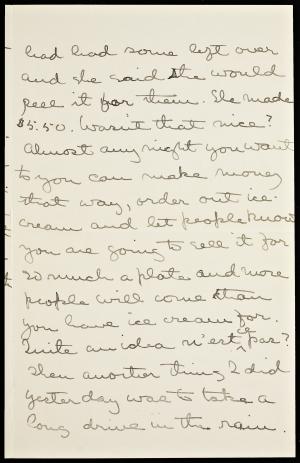 had had some left over
and she said she would
sell it for them. She made
$5.50. Wasn't that nice?
Almost any night you want
to you can make money
that way, order out ice-
cream and let people know
you are going to sell it for
so much a plate and more
people will come than
you have ice cream for.
Quite an idea n'est ce pas?
Then another thing I did
yesterday was to take a
long drive in the rain.